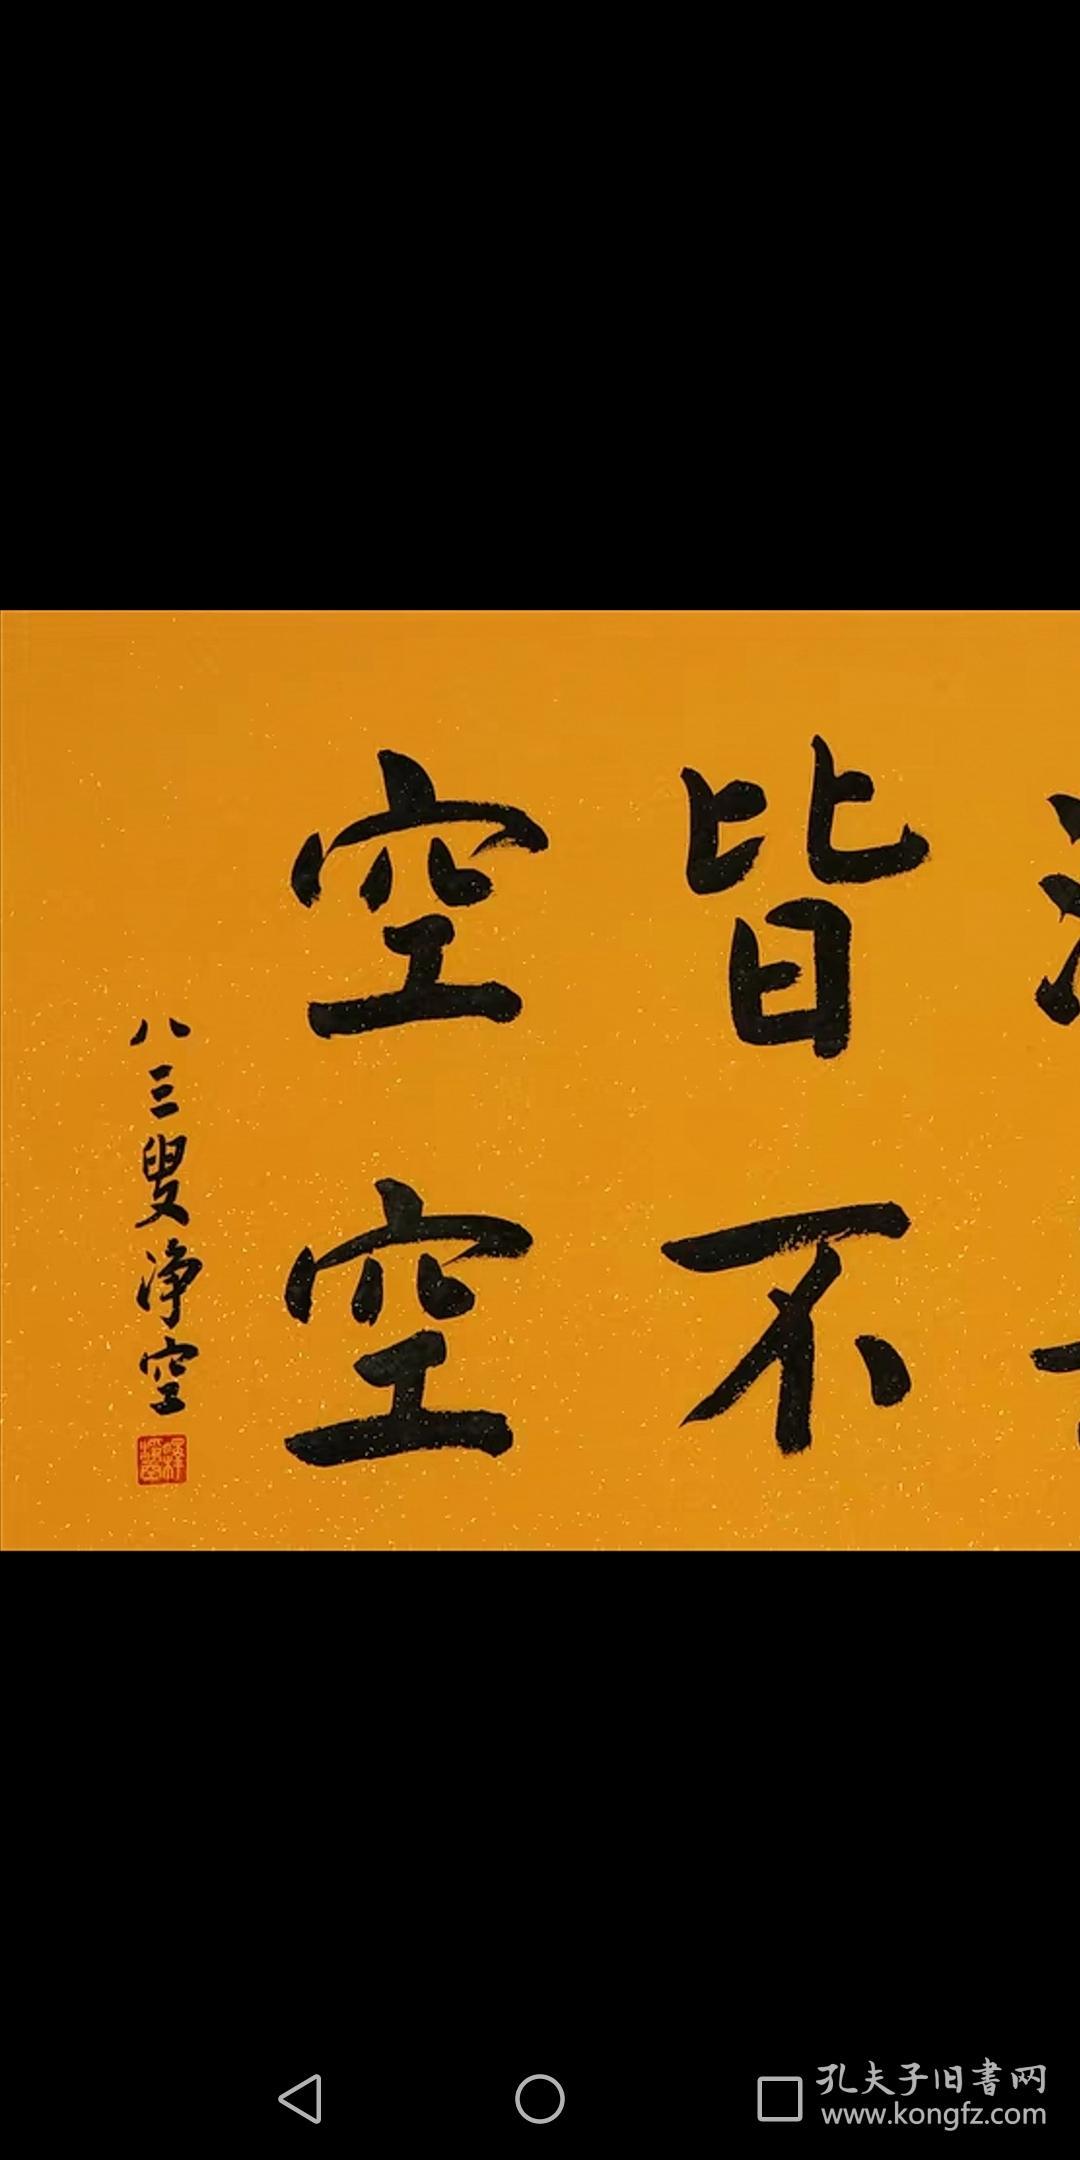 皆空
不空
八三叟净空
孔夫子旧書网
www.kongfz.com